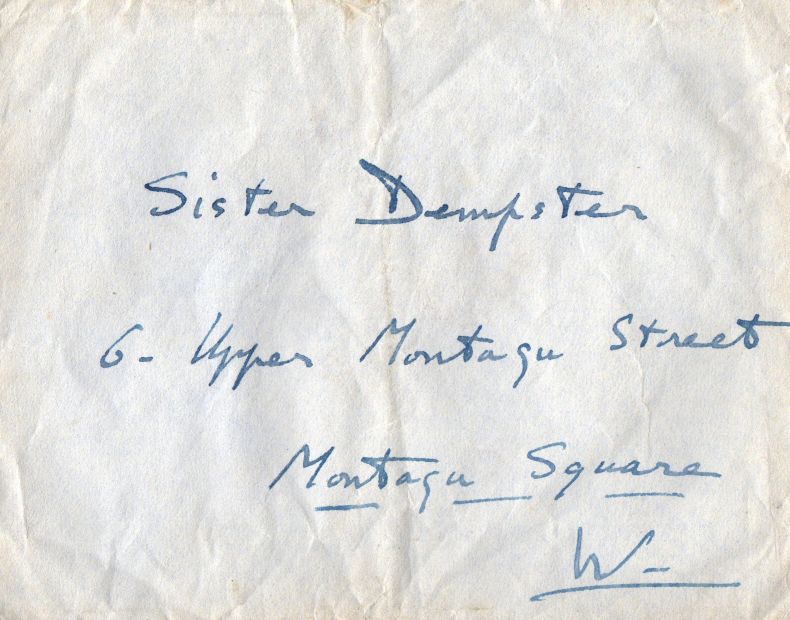 Sister Dempster
6- Upper Montagu Street
Montagu Square
W-